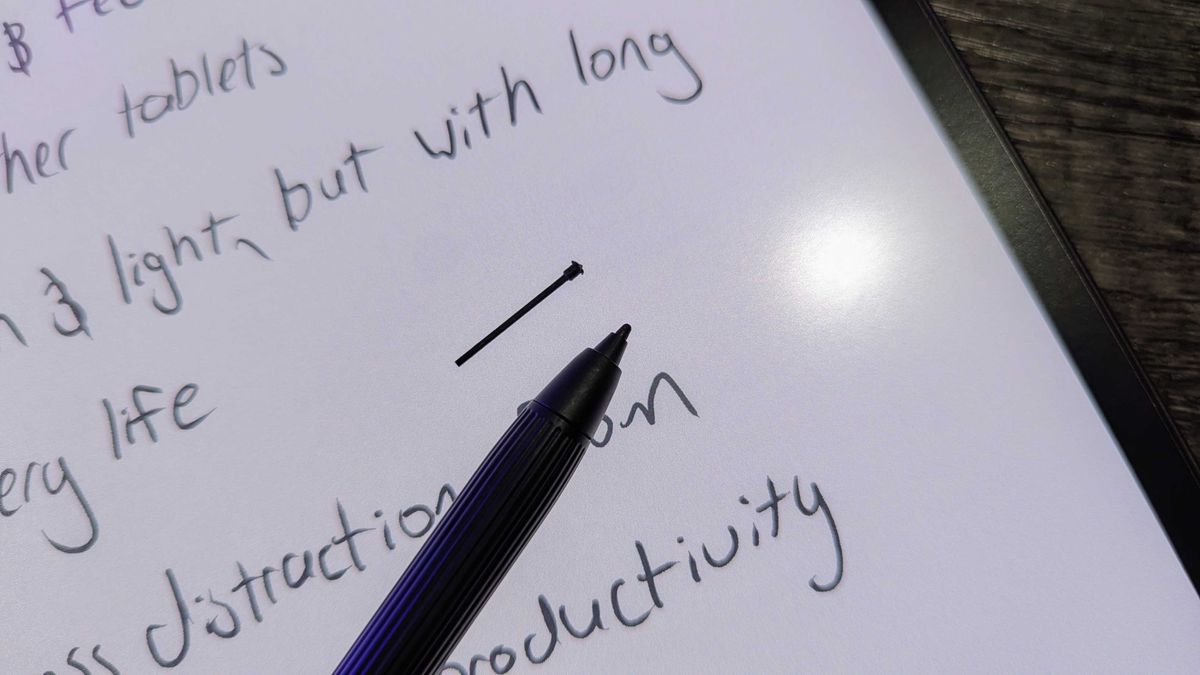 her tablets
& light, but with long
ery life
ss distraction on
productivity